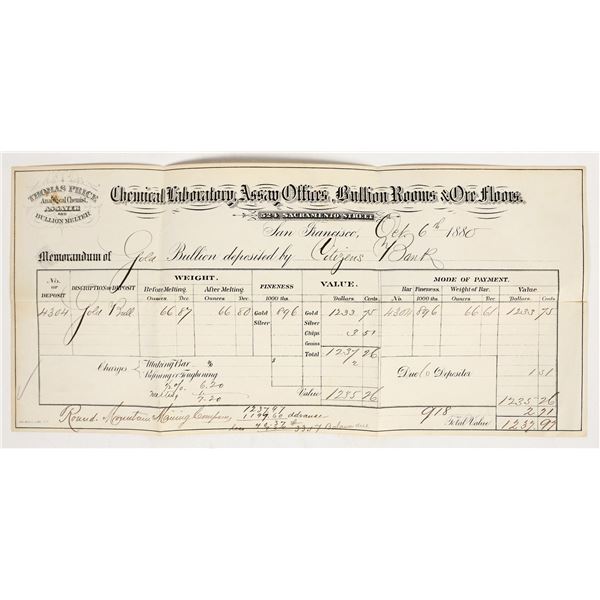 THOMAS PRICE
Analytical Chemist,
ASSAYER
AND
BULLION MELTER
Chemical Laboratory, Assay Offices, Bullion Rooms & Ore Floors.
524 SACRAMENTO STREET
San Francisco, Oct 6th 1880
Memorandum of Gold Bullion deposited by Citizens Bank
No. OF DEPOSIT DISCRIPTION OF DEPOSIT WEIGHT. FINENESS VALUE. MODE OF PAYMENT.
Before Melting. After Melting. Bar Fineness. Weight of Bar. Value
Ounces Dec. Ounces Dec. 1000 ths. Dollars Cents No. 1000 ths. Ounces Dec. Dollars Cents
4304 Gold Bull 66.87 66.80 Gold 896 1233 75 4304 896 66.61 1233 75
Silver Silver
Chips 3 51
Grains
Total 1237 26
Charges Making Bar % $ 2
Refining or Toughening Due to Depositor 1 51
6.20
Melting 1
7.20 Value 1235 26 1235 26
Round Mountain Mining Company 1237 97 918 2 71
1199.60 advance Total Value 1237.97
Balance due